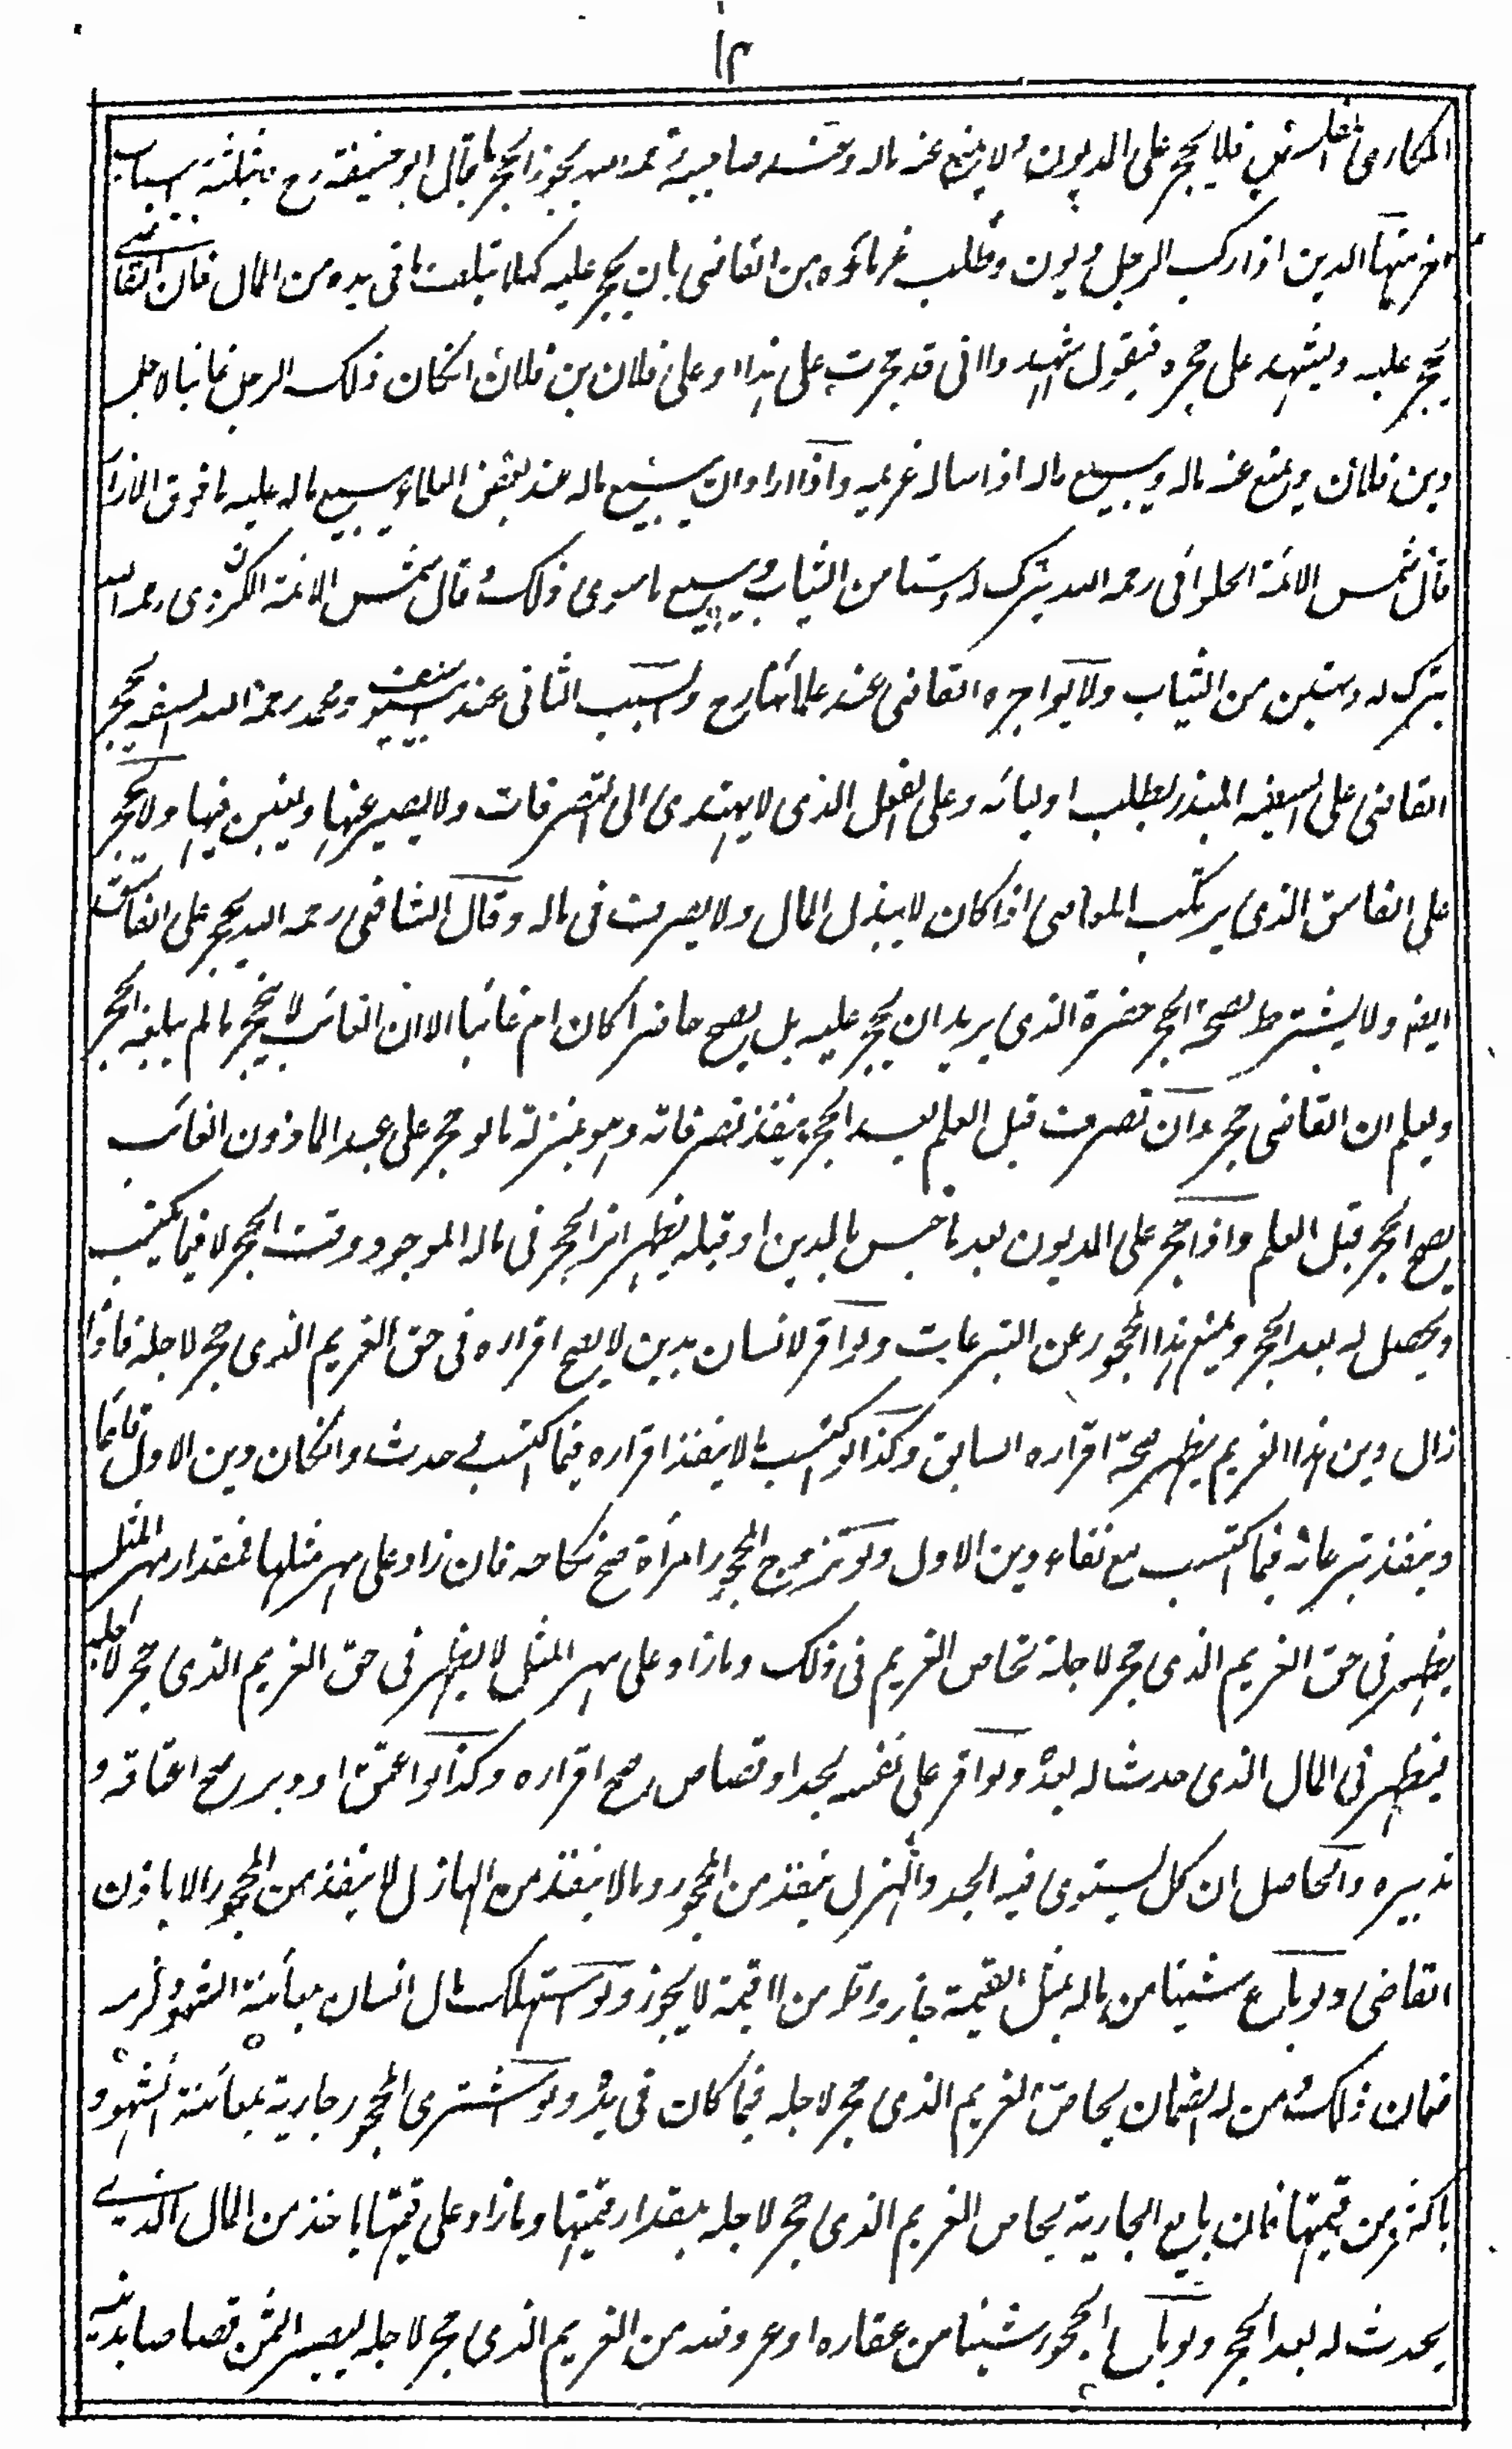 ١٢
المكارى المفلس فلا يحجر على المديون ولا يمنع عنه ماله وعند صاحبيه رحمهما الله يجوز الحجر بما قال ابو حنيفة رح وبثلثة اسباب
اخر منها الدين اذا ركب الرجل ديون وطلب غرماؤه من القاضى بان يحجر عليه كيلا يتلف ما فى يده من المال فان القاضى
يحجر عليه ويشهد على حجره فيقول اشهدوا انى قد حجرت على هذا او على فلان بن فلان انكان ذلك الرجل غائبا لاجل
دين فلان ويمنع عنه ماله ويبيع ماله اذا ساله غريمه واذا اراد ان يبيع ماله عند بعض العلماء يبيع ماله عليه ما فوق الازار
قال شمس الائمة الحلوائى رحمه الله يترك دستا من الثياب ويبيع ما سوى ذلك وقال شمس الائمة الكردرى رحمه الله
يترك له دستين من الثياب ولا يواجره القاضى عند علمائنا رح والسبب الثانى عند ابى يوسف ومحمد رحمهما الله السفه يحجر
القاضى على السفيه المبذر بطلب اوليائه وعلى المغفل الذى لا يهتدى الى التصرفات ولا يصبر عنها ويغبن فيها ولا يحجر
على الفاسق الذى يرتكب المعاصى اذا كان لا يبذل المال ولا يصرف فى ماله وقال الشافعى رحمه الله يحجر على الفاسق
ايضا ولا يشترط لصحة الحجر حضرة الذى يريد ان يحجر عليه بل يصح حاضرا كان ام غائبا الا ان الغائب لا ينحجر ما لم يبلغه الحجر
ويعلم ان القاضى حجره وان تصرف قبل العلم بعد الحجر ينفذ تصرفاته وهو بمنزلة ما لو حجر على عبد الماذون الغائب
يصح الحجر قبل العلم واذا حجر على المديون بعد ما حبس بالدين او قبله يظهر اثر الحجر فى ماله الموجود وقت الحجر لا فيما يكتسب
ويحصل له بعد الحجر ويمنع هذا المحجور عن التبرعات ولو اقر لانسان بدين لا يصح اقراره فى حق الغريم الذى حجر لاجله فاذا
زال دين هذا الغريم يظهر صحة اقراره السابق وكذا لو اكتسب مالا ينفذ اقراره فيما اكتسب وحدث وانكان دين الاول قائما
وينفذ تبرعاته فيما اكتسب مع بقاء دين الاول ولو تزوج المحجور امرأة صح نكاحه فان زاد على مهر مثلها فمقدار مهر المثل
يظهر فى حق الغريم الذى حجر لاجله تحاص الغريم فى ذلك وما زاد على مهر المثل لا يظهر فى حق الغريم الذى حجر لاجله
فيظهر فى المال الذى حدث له بعده ولو اقر على نفسه بحد او قصاص صح اقراره وكذا لو اعتق او دبر صح اعتاقه و
تدبيره والحاصل ان كل يستوى فيه الجد والهزل ينفذ من المحجور وما لا ينفذ من الهازل لا ينفذ من المحجور الا باذن
القاضى ولو باع شيئا من ماله بمثل القيمة جاز واقل من القيمة لا يجوز ولو استهلك مال انسان بمعائنة الشهود لزمه
ضمان ذلك ومن له الضمان يحاص الغريم الذى حجر لاجله فيما كان فى يده ولو اشترى المحجور جارية بمعائنة الشهود
باكثر من قيمتها فان بايع الجارية يحاص الغريم الذى حجر لاجله بمقدار قيمتها وما زاد على قيمتها ياخذ من المال الذى
يحدث له بعد الحجر ولو باع المحجور شيئا من عقاره او عروضه من الغريم الذى حجر لاجله ليصير الثمن قصاصا بدينه